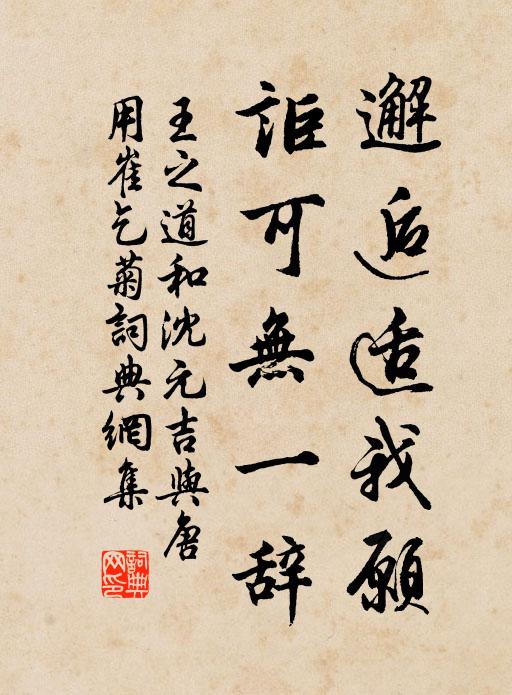 邂逅适我願
詎可無一辞
王之道和沈元吉與唐
用崔乞菊詞典網集
詞典网印